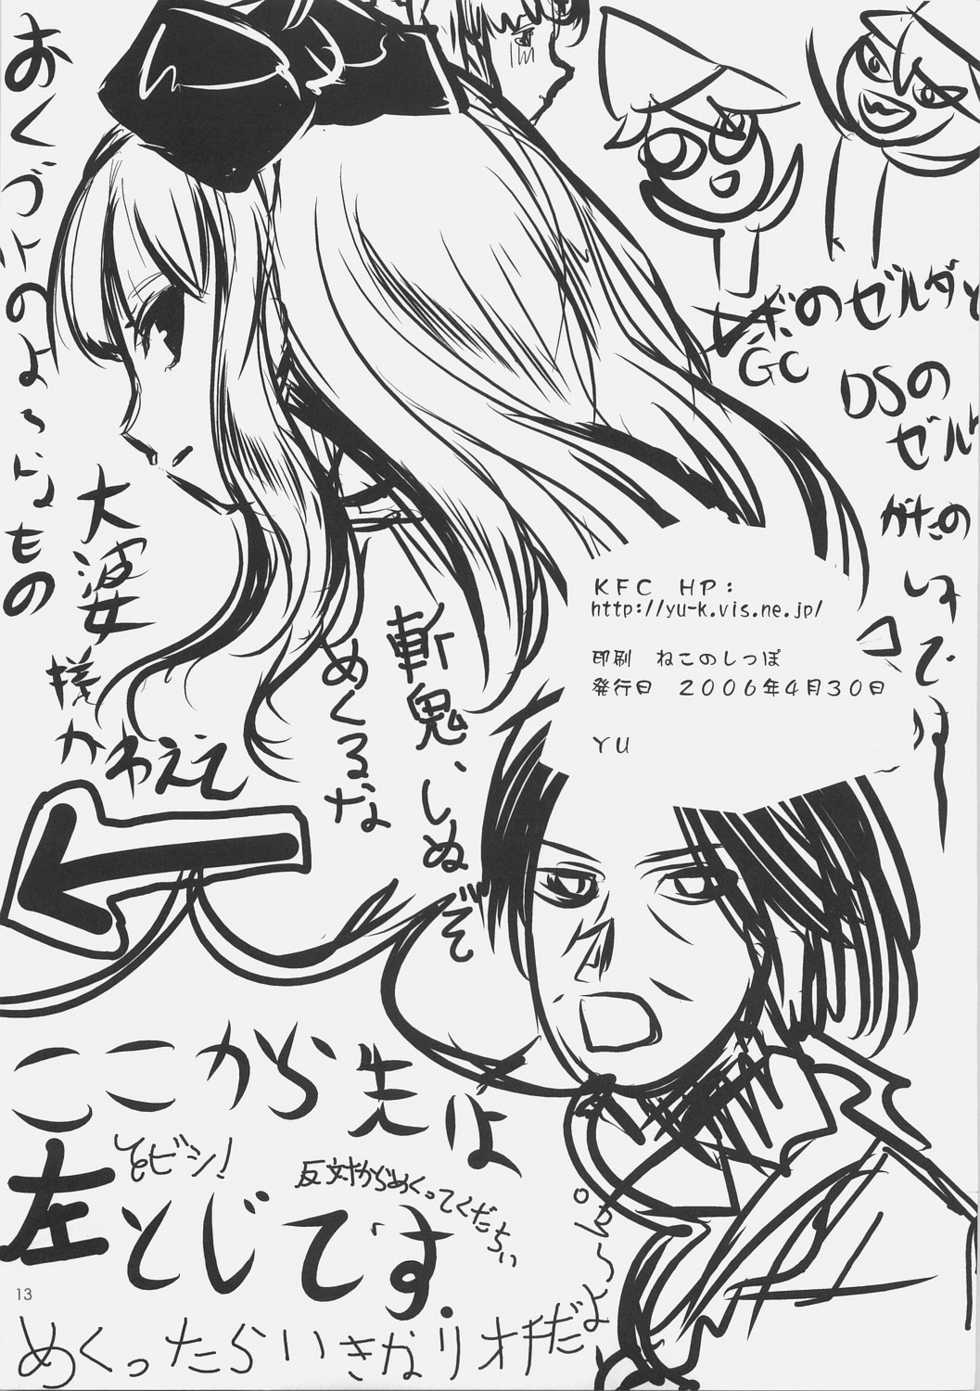 おくづけのよ〜なもの
GCのゼルダと
DSのゼル
がたのしみです
大婆
様かわええ
斬鬼、しぬぞ
めくるな
KFC HP:
http://yu-k.vis.ne.jp/
印刷 ねこのしっぽ
発行日 2006年4月30日
YU
ここから先は
左とじです.
とビシ!
反対からめくってくだちい
めくったらいきなりオチだよ〜
13